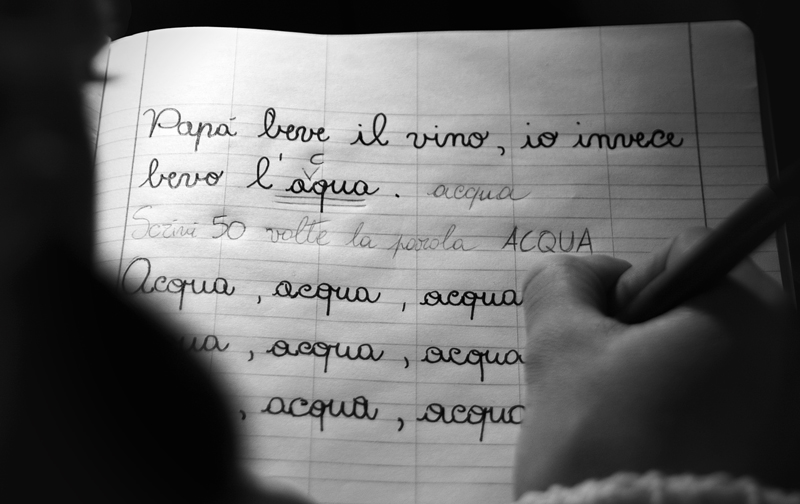 Papá beve il vino, io invece
c
bevo l'aqua. acqua
Scrivi 50 volte la parola ACQUA
Acqua, acqua, acqua
, acqua, acqua
, acqua,